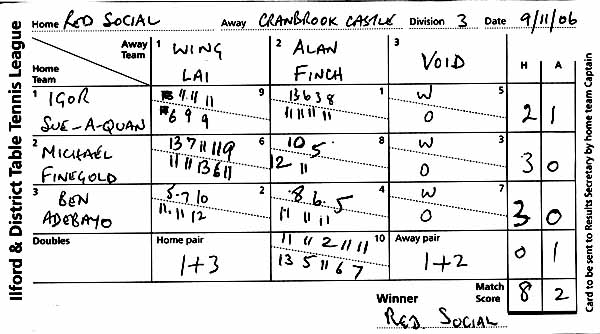 Ilford & District Table Tennis League
Home RED SOCIAL Away CRANBROOK CASTLE Division 3 Date 9/11/06
Away Team 1 WING LAI 2 ALAN FINCH 3 VOID H A
Home Team
1 IGOR SUE-A-QUAN
11 11 11 9
6 9 9
13 6 3 8 1
11 11 11 11
W 5
0
2 1
2 MICHAEL FINEGOLD
13 7 11 11 9 6
11 11 13 6 11
10 5 8
12 11
W 3
0
3 0
3 BEN ADEBAYO
5 7 10 2
11 11 12
8 6 5 4
11 11 11
W 7
0
3 0
Doubles Home pair 1+3
11 11 2 11 11 10
13 5 11 6 7
Away pair 1+2
0 1
Winner RED SOCIAL
Match Score 8 2
Card to be sent to Results Secretary by home team Captain